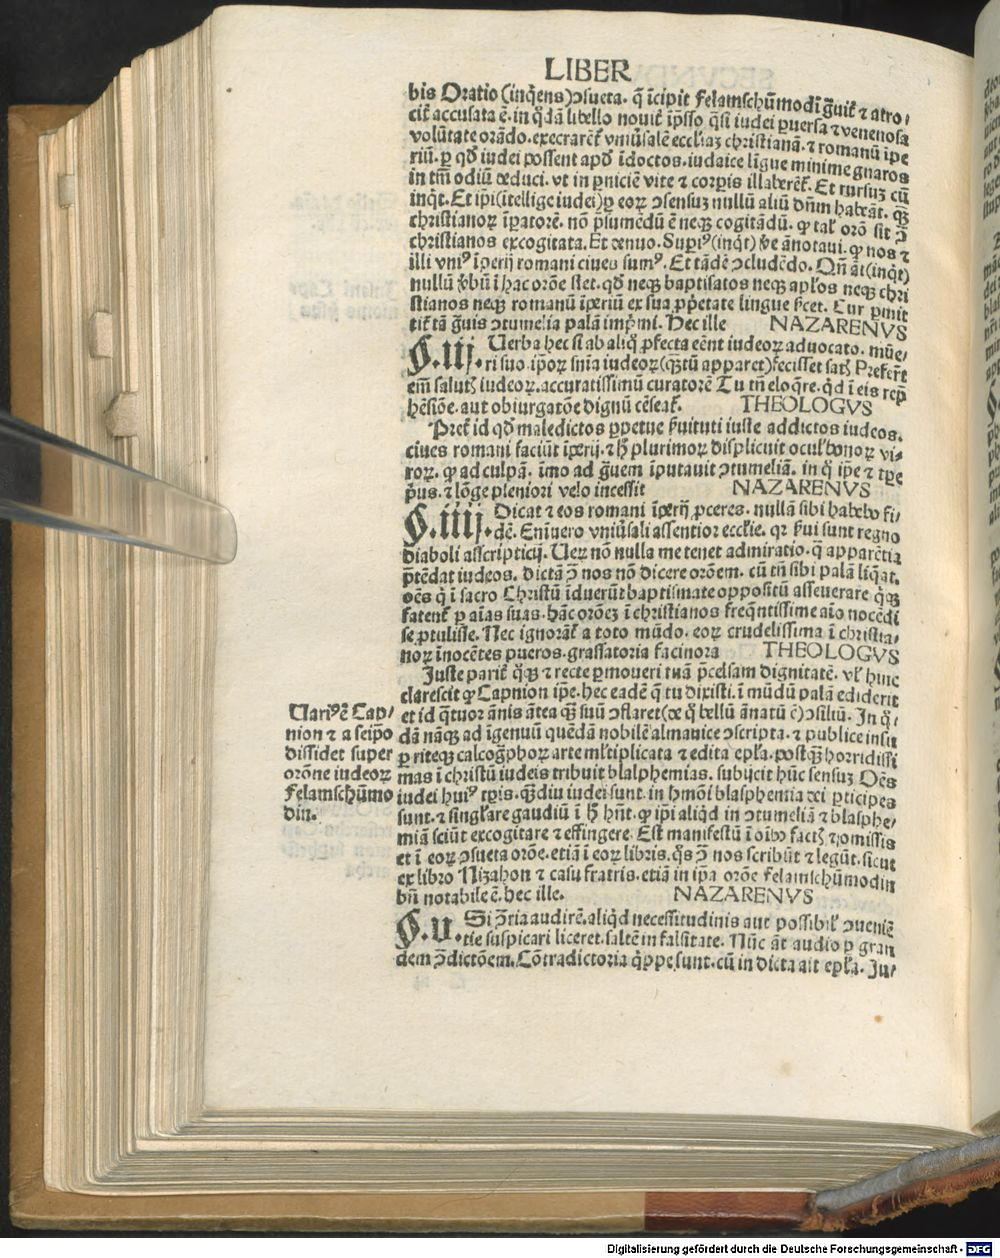 LIBER
bis Oratio (inq̄ens)ↄsueta. q̄ īcipit Felamschūmodī g̃uiť ⁊ atro⸗
ciť accusata ē. in q̄dā libello nouiť īpſſo q̄ſi iudei ꝑuerſa ⁊ venenoſa
volūtate orādo. execrarēť vniūſalē eccłiaꝫ chriſtianā. ⁊ romanū īpe
riū. ꝑ qđ iudei poſſent apđ īdoctos. iudaice līgue minime gnaros
in tm̄ odiū deduci. vt in ꝑniciē vite ⁊ corꝑis illaberēť. Et rurſuꝫ cū
inq̇t. Et ip̄i(ītellige iudei)ꝑ eoꝝ ↄſensuꝫ nullū aliū dn̄m habeāt. q̄ꝫ
chriſtianoꝝ īꝑatorē. nō p̄ſumēdū ē neqꝫ cogitādū. ꝙ tał orō ſit ↄ̄
chriſtianos excogitata. Et denuo. Supiꝰ(inq̇t) bn̄e ānotaui. ꝙ nos ⁊
illi vniꝰ īperij romani ciues ſumꝰ. Et tādē ↄcludēdo. Qn̄ āt(inq̇t)
nullū v̄bū ī hac orōe ſtet. qđ neqꝫ baptiſatos neqꝫ apłos neqꝫ chri
ſtianos neqꝫ romanū īperiū ex ſua ꝓp̄etate lingue ẜcet. Cur ꝑmit
tiť tā g̃uis ↄtumelia palā imp̄mi. Hec ille NAZARENVS
§.iij. Uerba hec ſi ab aliq̊ ꝓfecta eēnt iudeoꝝ aduocato. mūe⸗
ri ſuo ip̄oꝝ ſn̄ia iudeoꝝ(q̄ꝫtū apparet)feciſſet ſatꝭ Prefert̄
em̄ ſalutꝭ iudeoꝝ. accuratiſſimū curatorē Tu tn̄ eloq̄re. q̇d ī eis rep̄
hēſiōe. aut obiurgatōe dignū cēſeať. THEOLOGVS
Preť id qđ maledictos ꝑpetue ẜuituti iuſte addictos iudeos.
ciues romani faciūt īꝑerij. ⁊ ħ plurimoꝝ diſplicuit ocuł bonoꝝ vi⸗
roꝝ. ꝙ ad culpā. īmo ad g̃uem īputauit ↄtumeliā. in q̄ ip̄e ⁊ tꝑe
p̄us. ⁊ lōge pleniori velo inceſſit NAZARENVS
§.iiij. Dicat ⁊ eos romani īꝑerij ꝓceres. nullā ſibi habebo fi⸗
dē. Enīuero vniūſali aſſentior eccłie. qꝛ ẜui ſunt regno
diaboli aſſcripticij. Ueꝝ nō nulla me tenet admiratio. q̄ apparētia
p̄tēdat iudeos. dictā ↄ̄ nos nō dicere orōem. cū tn̄ ſibi palā liq̄at.
oēs q̇ ī ſacro Chriſtū īduerūt baptiſmate oppoſitū aſſeuerare q̇qꝫ
fatenť ꝑ aīas ſuas. hāc orōeꝫ ī chriſtianos freq̄ntiſſime aīo nocēdi
ſe ꝓtuliſſe. Nec ignorāť a toto mūdo. eoꝝ crudeliſſima ī chriſtia⸗
noꝝ īnocētes pueros. graſſatoria facinora THEOLOGVS
Juſte pariť q̊qꝫ ⁊ recte ꝑmoueri tuā p̄celſam dignitatē. vł hinc
clareſcit ꝙ Capnion ip̄e. hec eadē q̄ tu dixiſti. ī mūdū palā ediderit
et id q̄tuor ānis ātea q̄ꝫ ſuū ↄflaret(de q̊ bellū ānatū ē)ↄſiliū. In q̄⸗
dā nāqꝫ ad īgenuū quēdā nobilē almanice ↄſcripta. ⁊ publice inſu
ꝑ riteqꝫ calcog̃phoꝝ arte mľtiplicata ⁊ edita epła. poſtq̄ꝫ horridiſſi
mas ī chriſtū iudeis tribuit blaſphemias. ſubijcit hūc ſenſuꝫ Oēs
iudei huiꝰ tꝑis. q̄ꝫdiu iudei ſunt. in hmōi blaſphemia dei ꝑticipes
ſunt. ⁊ ſingľare gaudiū ī ħ hn̄t. ꝙ ip̄i aliq̇d in ↄtumeliā ⁊ blaſphe⸗
miā ſciūt excogitare ⁊ effingere. Eſt manifeſtū ī oībꝰ factꝭ ⁊ omiſſis
et ī eoꝝ ↄſueta orōe. etiā ī eoꝝ libris. q̊s ↄ̄ nos ſcribūt ⁊ legūt. ſicut
ex libro Nizahon ⁊ caſu fratris. etiā in ip̄a orōe Felamſchūmodin
bn̄ notabile ē. hec ille. NAZARENVS
§.v. Si ↄ̄ria audirē. aliq̇d neceſſitudinis aut poſſibił ↄueniē
tie ſuſpicari liceret. ſaltē in falſitate. Nūc āt audio ꝑ gran
dem ↄ̄dictōem. Cōtradictoria q̇ppe ſunt. cū in dicta ait epła. Ju⸗
Uariꝰ ē Cap⸗
nion ⁊ a ſeip̄o
diſſidet ſuper
orōne iudeoꝝ
Felamſchūmo
din.
Digitalisierung gefördert durch die Deutsche Forschungsgemeinschaft - DFG